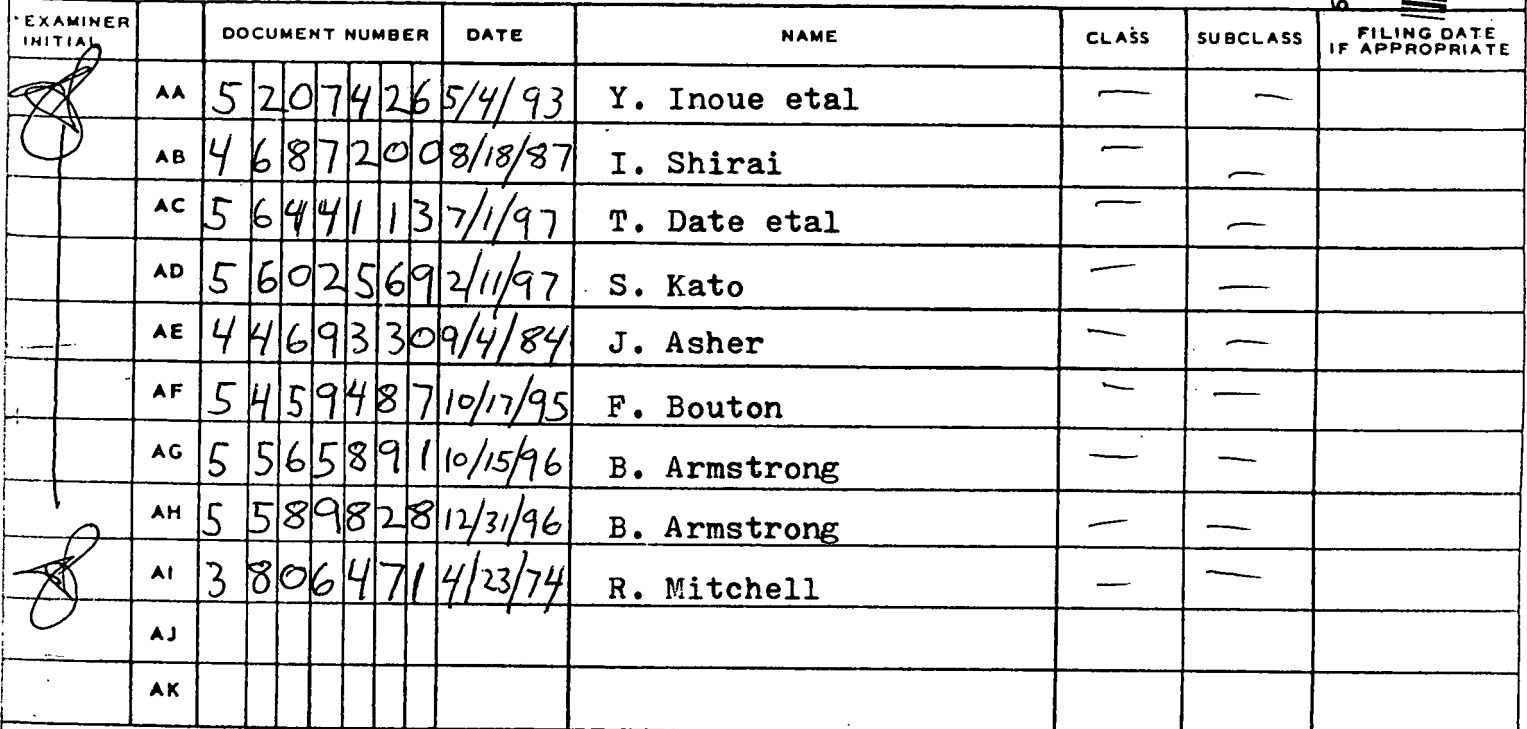 *EXAMINER INITIAL DOCUMENT NUMBER DATE NAME CLASS SUBCLASS FILING DATE IF APPROPRIATE
AA 5207426 5/4/93 Y. Inoue etal — —
AB 4687200 8/18/87 I. Shirai — —
AC 5644113 7/1/97 T. Date etal — —
AD 5602569 2/11/97 S. Kato — —
AE 4469330 9/4/84 J. Asher — —
AF 5459487 10/17/95 F. Bouton — —
AG 5565891 10/15/96 B. Armstrong — —
AH 5589828 12/31/96 B. Armstrong — —
AI 3806471 4/23/74 R. Mitchell — —
AJ
AK